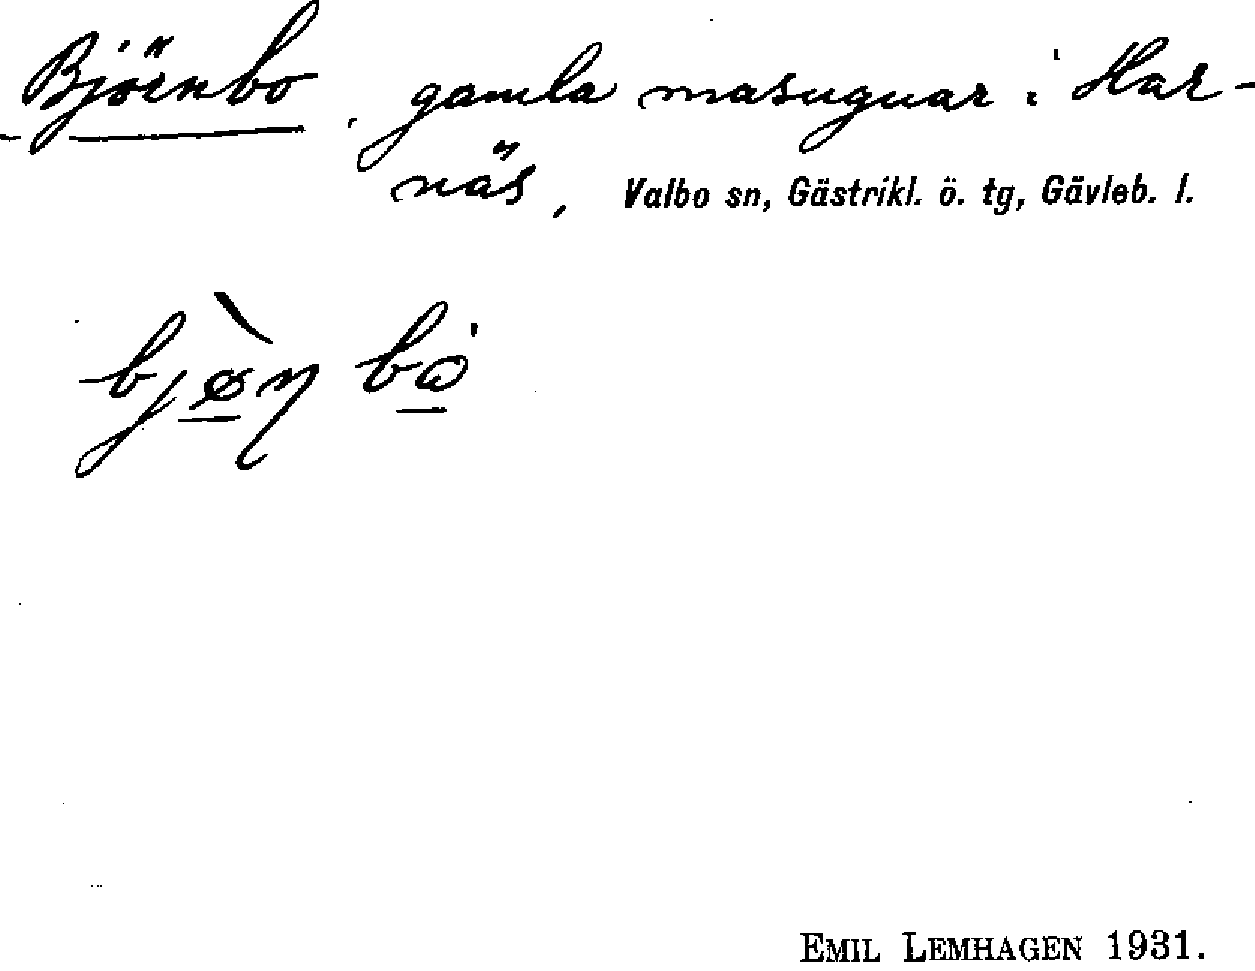 Björnbo, gamla masugnar i Har-
näs, Valbo sn, Gästrikl. ö. tg, Gävleb. l.
EMIL LEMHAGEN 1931.